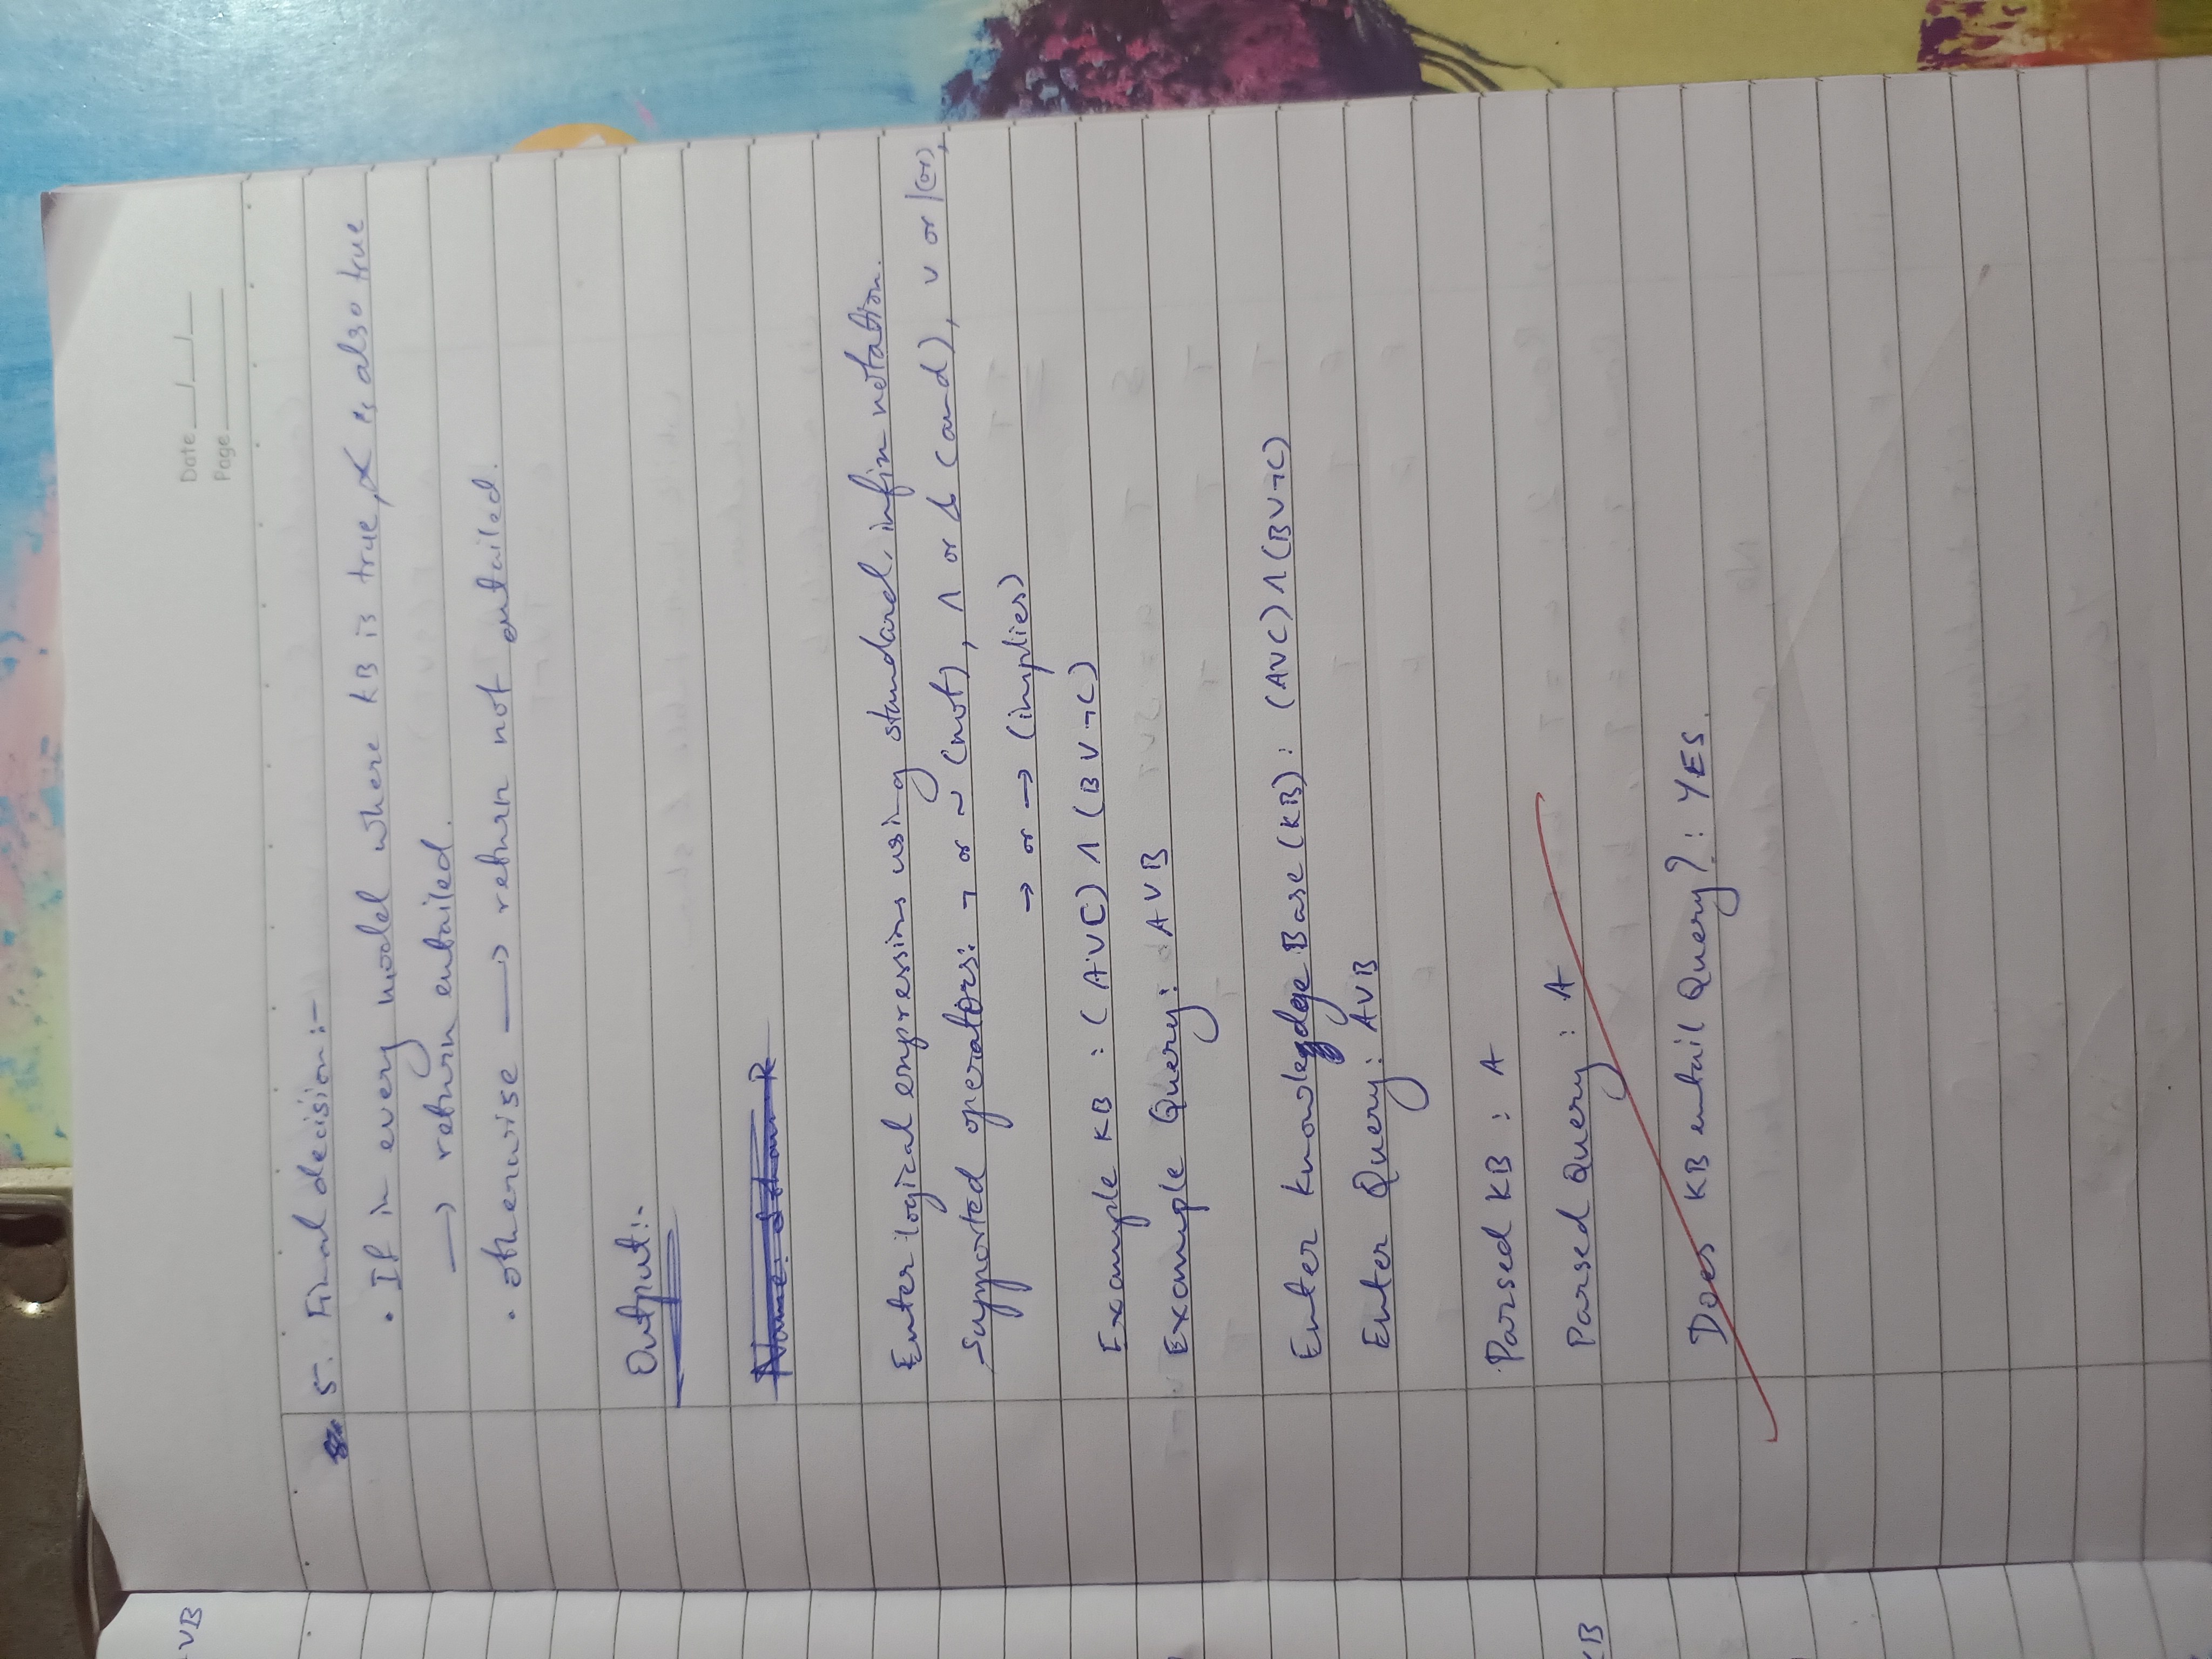 VB
Date
Page
5. Final decision:-
• If in every model where KB is true, α is also true
→ return entailed.
• otherwise → return not entailed.
Output:-
Name: R
Enter logical expressions using standard infix notation.
Supported operators: ¬ or ~ (not), ∧ or & (and), ∨ or | (or),
→ or → (implies)
Example KB : (A∨C) ∧ (B ∨ ¬C)
Example Query: A∨B
Enter Knowlegdge Base (KB): (A∨C) ∧ (B∨¬C)
Enter Query: A∨B
Parsed KB : A
KB
Parsed Query : A
Does KB entail Query? : YES.